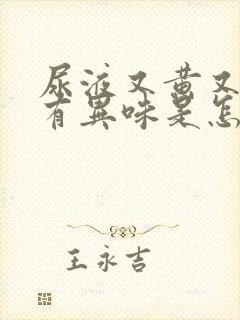 尿液又黄又
有異味是怎
王永吉